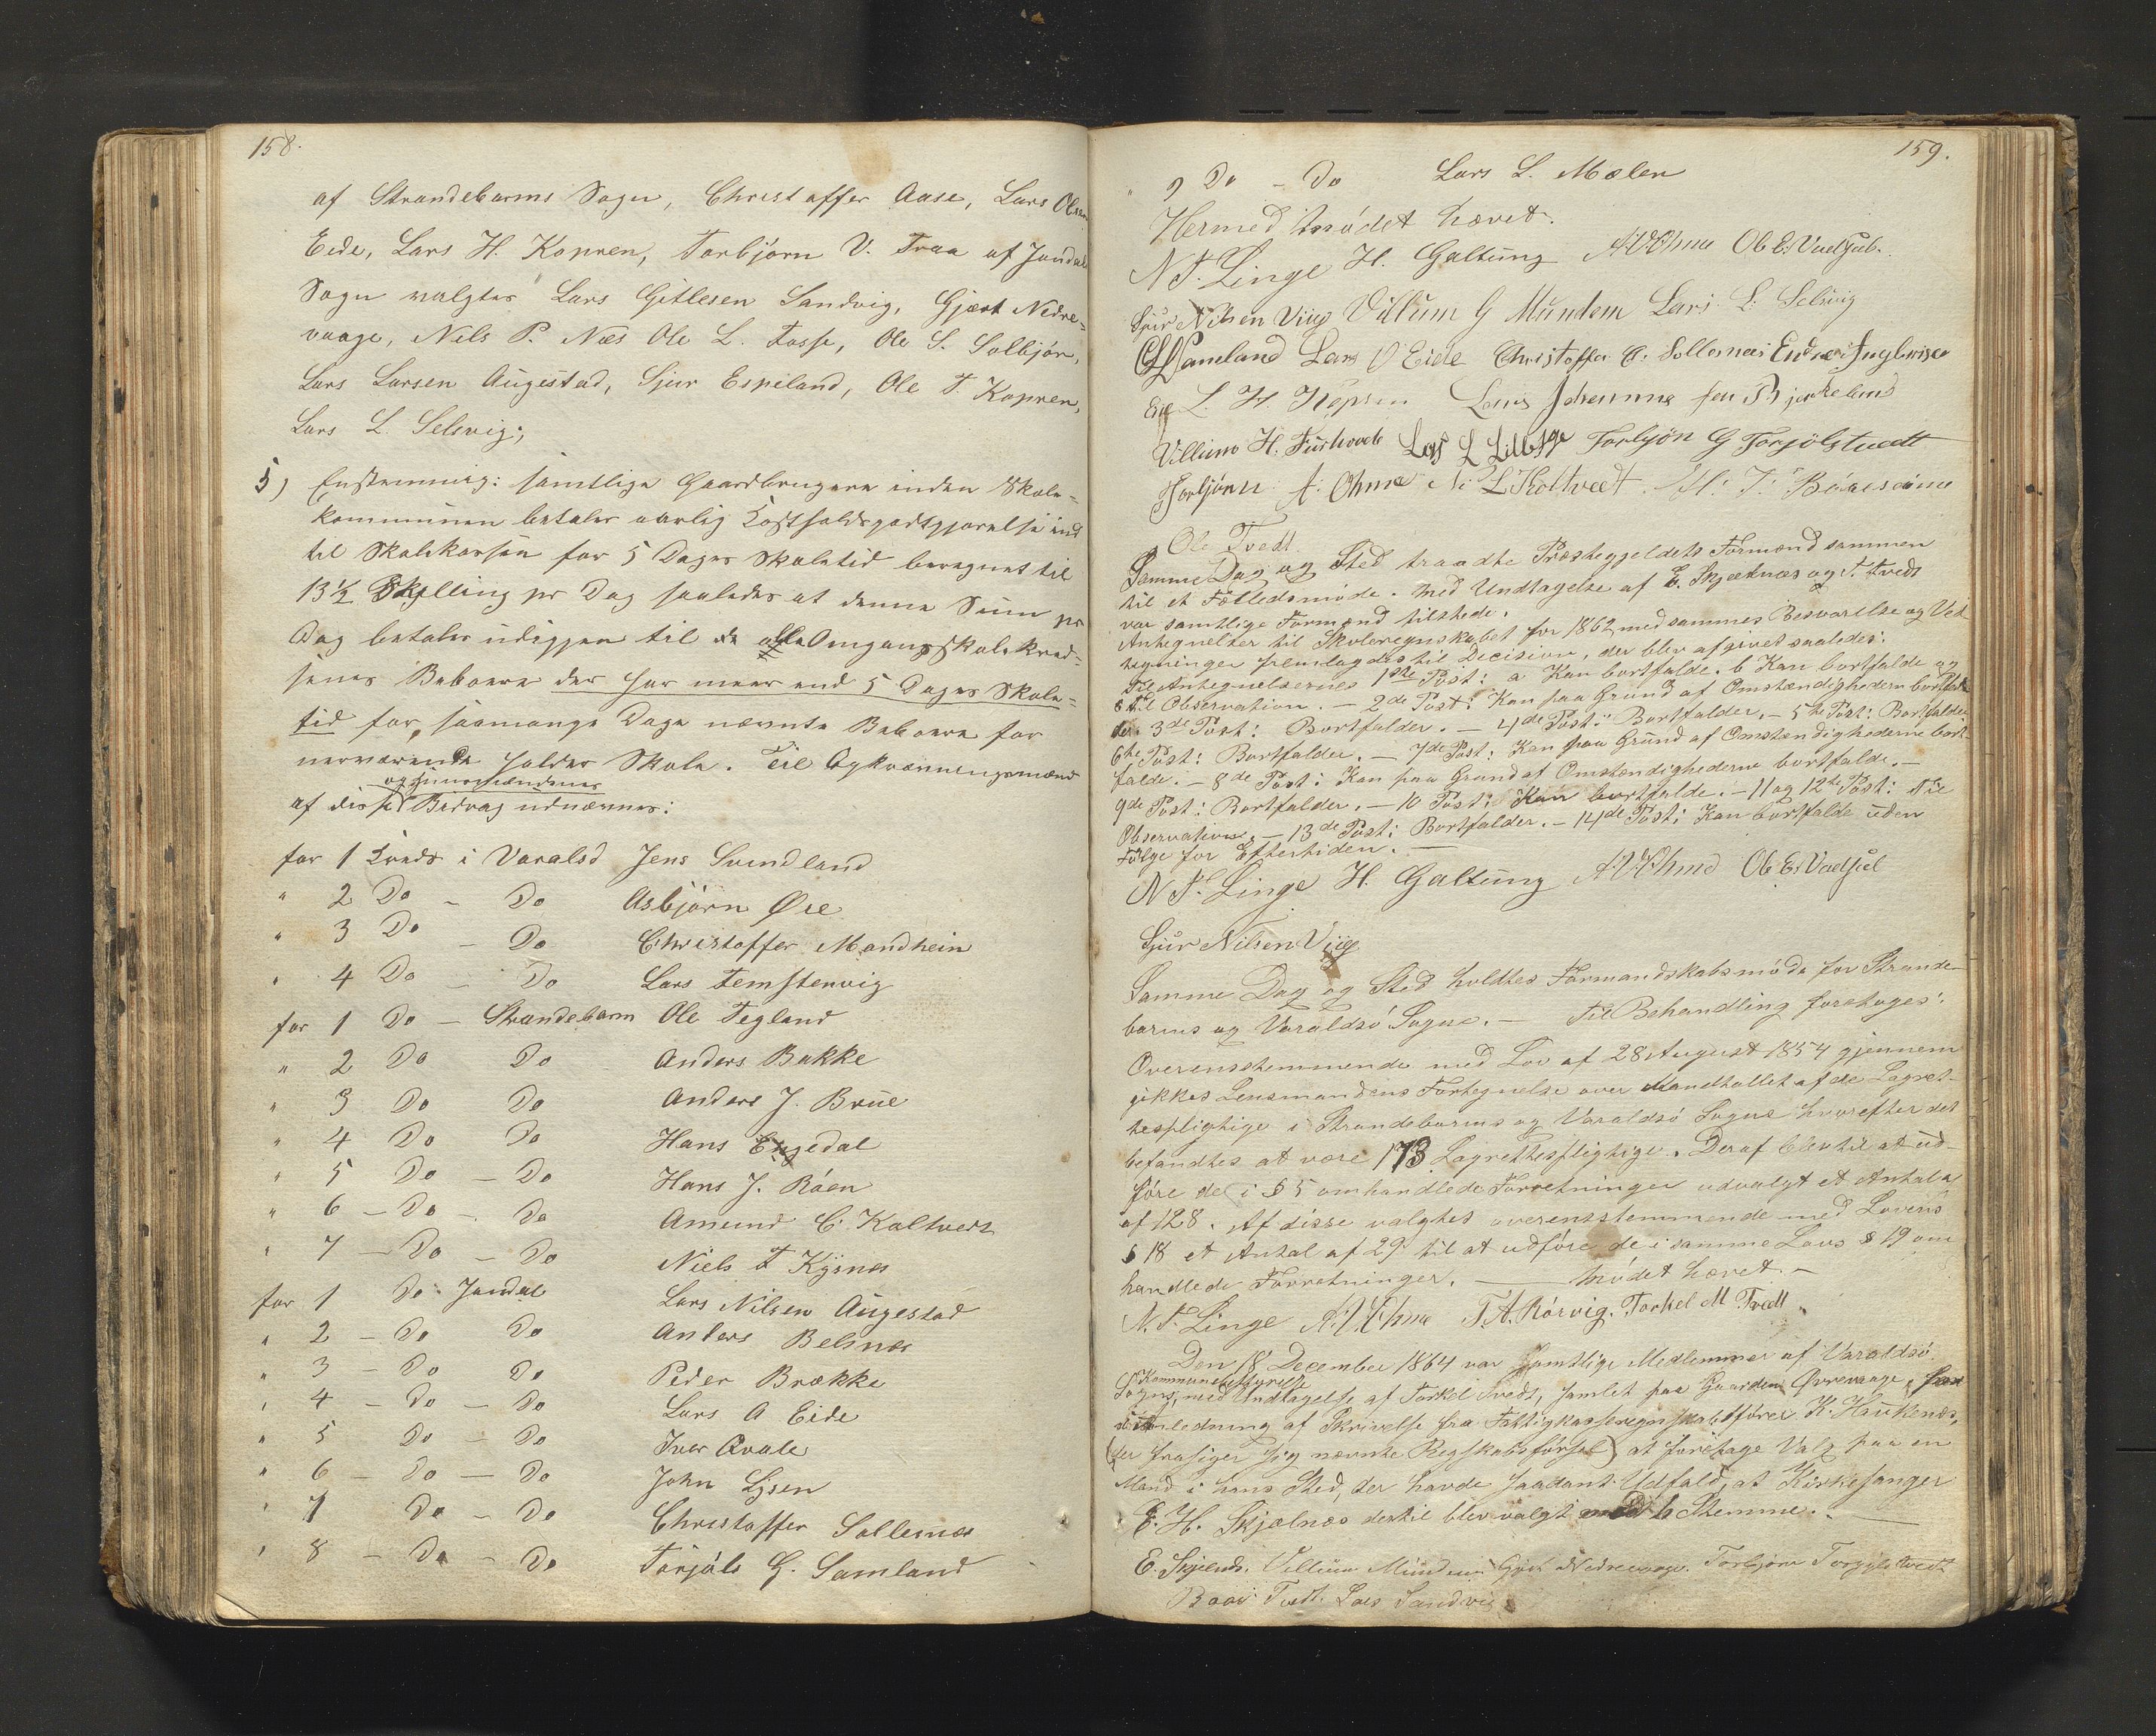 158.
af Strandebarms Sogn, Christaffer Aase, Lars Olsen
Eide, Lars H. Kopren, Torbjörn V. Traa af Jondals
Sogn valgtes Lars Gitlesen Sandvig, Gjært Nedre-
vaage, Nels P. Næs Ole L. Fosse, Ole S. Solbjör,
Lars Larsen Augestad, Sjur Espeland, Ole T. Kopren,
Lars L. Selsvig;
5) Enstemmig: samtlige Gaardbrugere inden Skole-
kommunen betaler aarlig Kostholdsgodtgjørelse ind
til Skolekassen for 5 Dages Skoletid beregnet til
13½ Skylling pr Dag saaledes at denne Sum pr
Dag betales udigjen til de alle Omgangsskolekred-
senes Beboere der har meer end 5 Dages Skole-
tid for saamange Dage nævnte Beboere for
nærværende holder Skole. Til Opkrævningsmænd
og
af disse Bidrag udnævnes:
for 1 Kreds i Varalsö Jens Sundland
" 2 Do - Do Asbjörn Øie
" 3 Do - Do Christoffer Mandhein
" 4 Do - Do Lars Femstenvig
for 1 Do - Strandebarm Ole Tegland
" 2 Do Do Anders Bakke
" 3 Do Do Anders J. Brue
" 4 Do Do Hans Engedal
" 5 Do - Do Hans J. Röen
" 6 - Do - Do Amund C. Koltvedt
" 7 - Do - Do Niels T Kysnes
for 1 Do Jondal Lars Nilsen Augestad
" 2 - Do Do Anders Belsnes
" 3 - Do Do Peder Brække
" 4 - Do - Do Lars A Eide
" 5 Do - Do Iver Qvale
" 6 - Do - Do John Lysen
" 7 Do - Do Christaffer Sollesnes
" 8 - Do - Do Torjåls G. Samland
159.
" 9 Do - Do Lars L. Mælen
Hermed mödet hævet.
N T. Linge H. Galtung A V Ohma Ole E. Vadsjul.
Sjur Nilsen Viig Villum G Mundem Lars L. Selsvig
Samland Lars O Eide Christoffer O. Sollesnes Endre Ingbrigt
L. H. Kopren Lars Johannes sen Bjerkeland
Villum H. Lars L Torbjön G Torjölstvedt
Torbjörn A. Ohma N. L Koltvedt.
Ole Tvedt
Samme Dag og Sted traadte Præstegjeldets Formænd sammen
til et Fælledsmöde. Med Undtagelse af E. Skjælnæs og T. Tvedt
var samtlige Formænd tilstede.
Antegnelser til Skoleregnskabet for 1862 med sammes Besvarelse og Ved-
tegninger fremlagdes til Decision, der blev afgivet saaledes:
Til Antegnelsernes 1ste Post: a Kan bortfalde. b Kan bortfalde og
c til Observation. - 2de Post: Kan paa Grund af Omstændighedern bortfal-
de. 3de Post: Bortfalder. - 4de Post: Bortfalder. - 5te Post: Bortfalder.
6te Post: Bortfalder. - 7de Post: Kan paa Grund af Omstændighederne bort-
falde. - 8de Post: Kan paa Grund af Omstændighederne bortfalde. -
9de Post: Bortfalder. - 10 Post: Kan bortfalde. - 11 og 12te Post: Til
Observation. - 13de Post: Bortfalder. - 14de Post: Kan bortfalde uden
Følge for Eftertiden. -
N T. Linge H. Galtung A V Ohma Ole E. Vadsjul
Sjur Nilsen Viig
Samme Dag og Sted holdtes Formandskabsmöde for Strande-
barms og Varaldsö Sogne. - Til Behandling foretoges:
Overensstemmende med Lov af 28 August 1854 gjennem
gikkes Lensmandens Fortegnelse over Mandtallet af de Lagret-
tespligtige i Strandebarms og Varaldsö Sogne hvorefter det
befandtes at være 173 Lagrettespligtige. Deraf blev til at ud-
före de i § 5 omhandlede Forretninger udvalgt et Antal a
af 128. Af disse valgtes overensstemmende med Lovens
§ 18 et Antal af 29 til at udföre de i samme Lovs § 19 om
handlede Forretninger. - Mödet hævet. -
N. T. Linge A. V. Ohma T. A. Rörvig. Torkel M Tvedt.
Den 18 December 1864 var samtlige Medlemmer af Varaldsö
Kommunebestyrelse
Sogns, med Undtagelse af Torkel Tvedt, samlet paa Gaarden Øvrevaage, for
i Anledning af Skrivelse fra Fattigkasseregnskabsfører K. Haukenæs,
(der frasiger sig nævnte Regskabsførsel) at foretage Valg paa en
Mand i hans Sted, der havde saadant Udfald, at Kirkesanger
E. H. Skjælnæs dertil blev valgt med 6 Stemme. -
E. Skjelnæs. Villum Mundem Gjert Nedrevaage. Torbjörn Torgjilstvedt
Baar Tvedt. Lars Sandvig